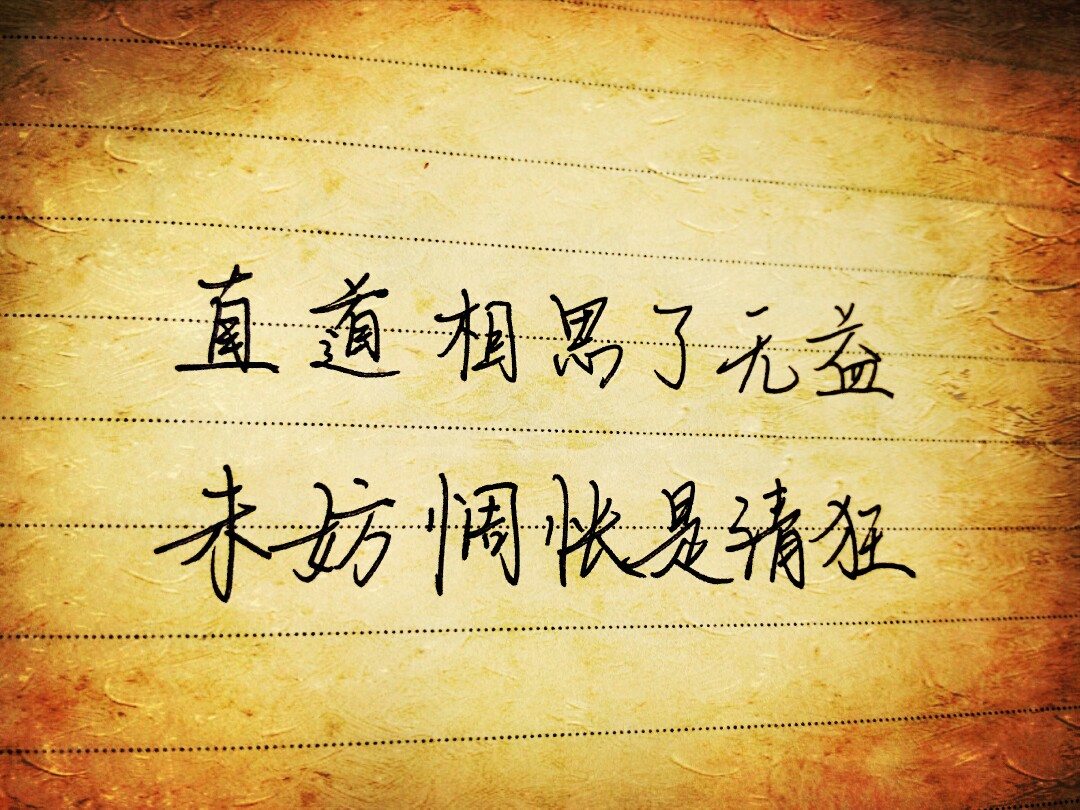 直道相思了无益
未妨惆怅是清狂